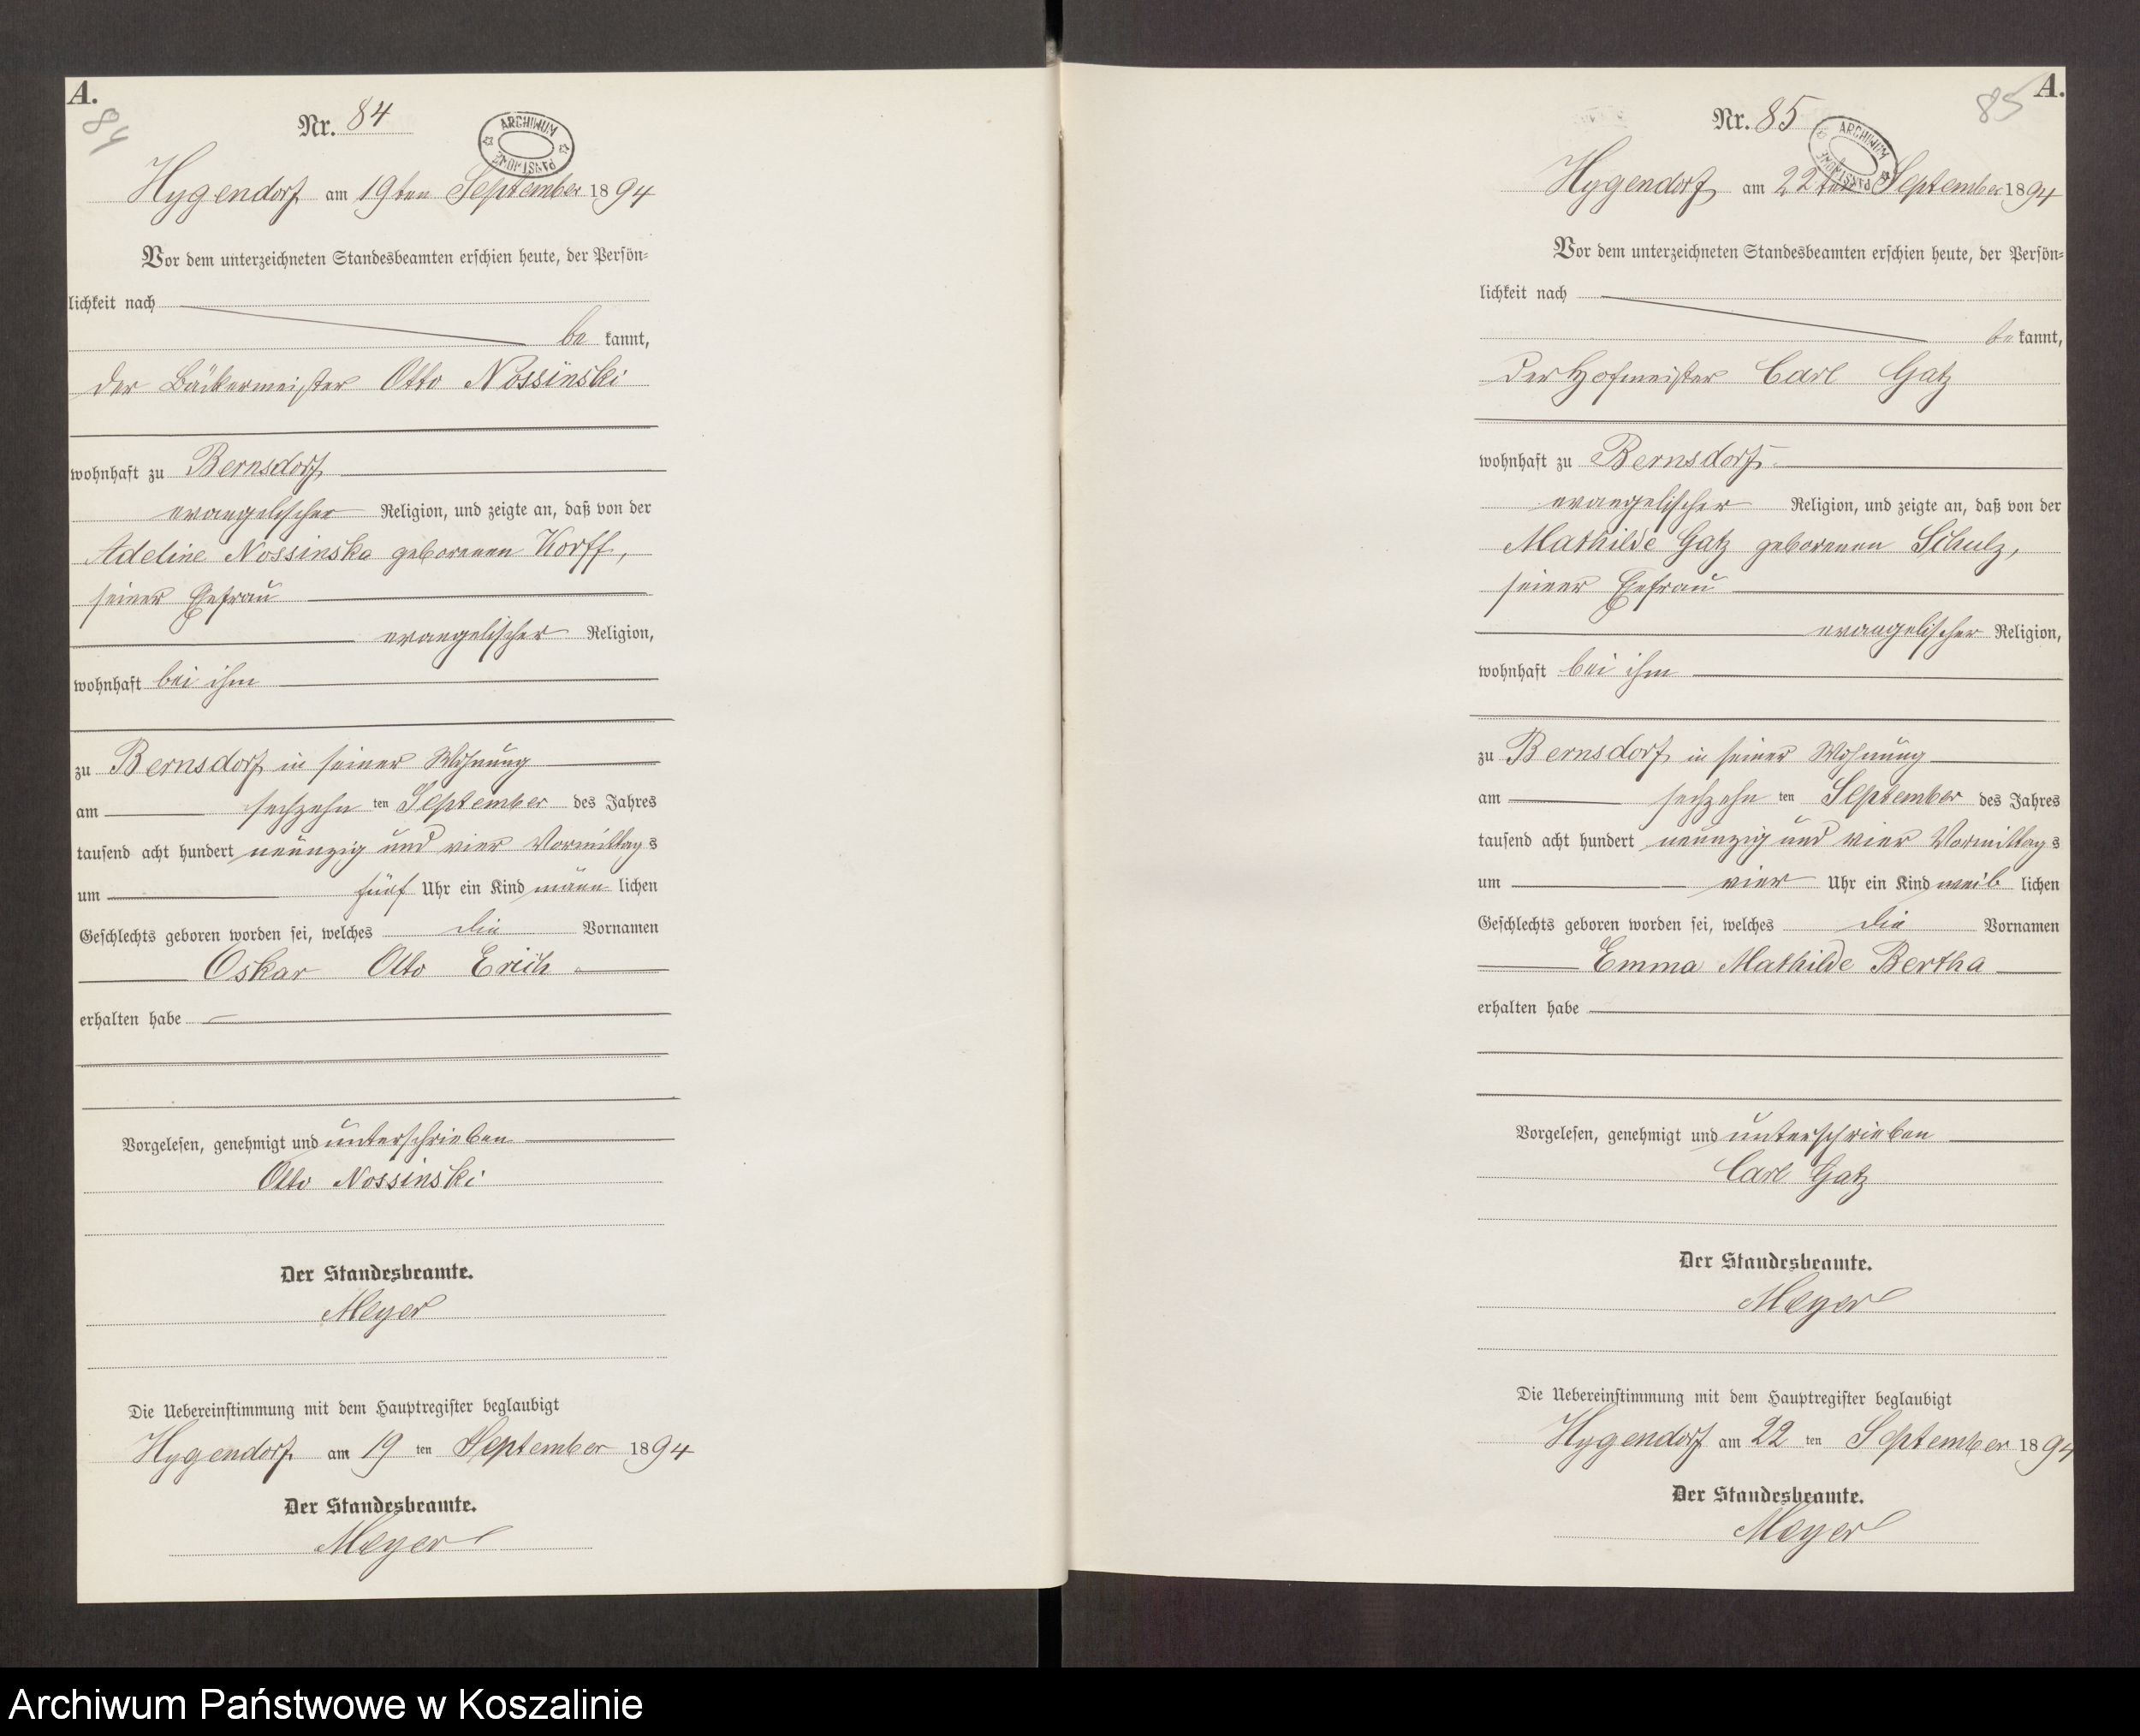 A.
84
Nr. 84
ARCHIWUM PAŃSTWOWE
Hygendorf am 19ten September 1894
Vor dem unterzeichneten Standesbeamten erschien heute, der Persön-
lichkeit nach
be kannt,
der Bäckermeister Otto Nossinski
wohnhaft zu Bernsdorf
evangelischer Religion, und zeigte an, daß von der
Adeline Nossinska geborenen Korff,
seiner Ehefrau
evangelischer Religion,
wohnhaft bei ihm
zu Bernsdorf in seiner Wohnung
am sechzehn ten September des Jahres
tausend acht hundert neunzig und vier Vormittags
um fünf Uhr ein Kind männ lichen
Geschlechts geboren worden sei, welches die Vornamen
Oskar Otto Erich
erhalten habe
Vorgelesen, genehmigt und unterschrieben
Otto Nossinski
Der Standesbeamte.
Meyer
Die Uebereinstimmung mit dem Hauptregister beglaubigt
Hygendorf am 19 ten September 1894
Der Standesbeamte.
Meyer
A.
85
Nr. 85
ARCHIWUM PAŃSTWOWE
Hygendorf am 22ten September 1894
Vor dem unterzeichneten Standesbeamten erschien heute, der Persön-
lichkeit nach
be kannt,
der Hofmeister Carl Gatz
wohnhaft zu Bernsdorf
evangelischer Religion, und zeigte an, daß von der
Mathilde Gatz geborenen Schulz,
seiner Ehefrau
evangelischer Religion,
wohnhaft bei ihm
zu Bernsdorf in seiner Wohnung
am sechzehn ten September des Jahres
tausend acht hundert neunzig und vier Vormittags
um vier Uhr ein Kind weib lichen
Geschlechts geboren worden sei, welches die Vornamen
Emma Mathilde Bertha
erhalten habe
Vorgelesen, genehmigt und unterschrieben
Carl Gatz
Der Standesbeamte.
Meyer
Die Uebereinstimmung mit dem Hauptregister beglaubigt
Hygendorf am 22 ten September 1894
Der Standesbeamte.
Meyer
Archiwum Państwowe w Koszalinie